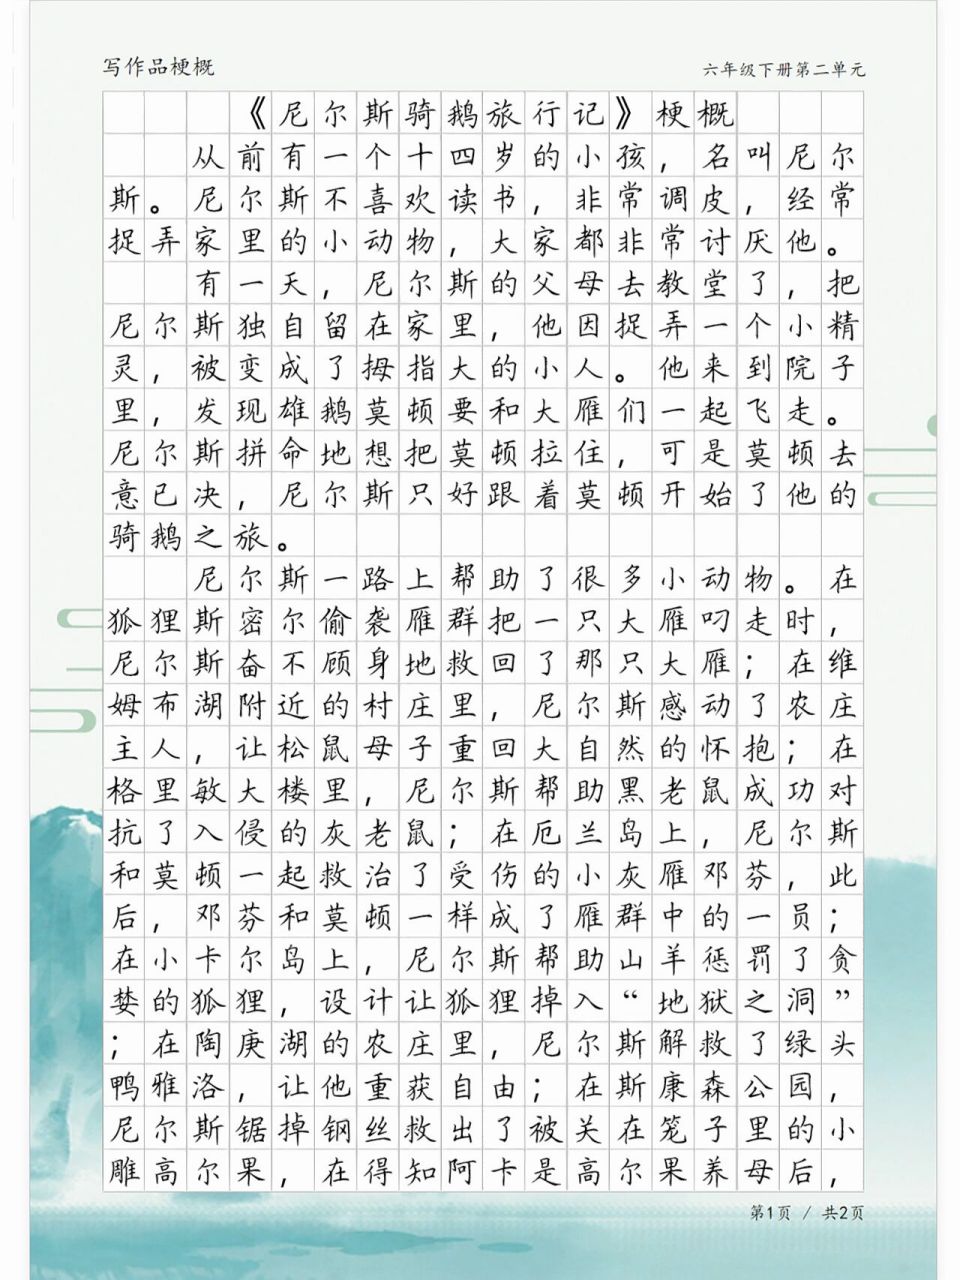 写作品梗概
六年级下册第二单元
《尼尔斯骑鹅旅行记》梗概
从前有一个十四岁的小孩，名叫尼尔
斯。尼尔斯不喜欢读书，非常调皮，经常
捉弄家里的小动物，大家都非常讨厌他。
有一天，尼尔斯的父母去教堂了，把
尼尔斯独自留在家里，他因捉弄一个小精
灵，被变成了拇指大的小人。他来到院子
里，发现雄鹅莫顿要和大雁们一起飞走。
尼尔斯拼命地想把莫顿拉住，可是莫顿去
意已决，尼尔斯只好跟着莫顿开始了他的
骑鹅之旅。
尼尔斯一路上帮助了很多小动物。在
狐狸斯密尔偷袭雁群把一只大雁叼走时，
尼尔斯奋不顾身地救回了那只大雁；在维
姆布湖附近的村庄里，尼尔斯感动了农庄
主人，让松鼠母子重回大自然的怀抱；在
格里敏大楼里，尼尔斯帮助黑老鼠成功对
抗了入侵的灰老鼠；在厄兰岛上，尼尔斯
和莫顿一起救治了受伤的小灰雁邓芬，此
后，邓芬和莫顿一样成了雁群中的一员；
在小卡尔岛上，尼尔斯帮助山羊惩罚了贪
婪的狐狸，设计让狐狸掉入“地狱之洞”
；在陶庚湖的农庄里，尼尔斯解救了绿头
鸭雅洛，让他重获自由；在斯康森公园，
尼尔斯锯掉钢丝救出了被关在笼子里的小
雕高尔果，在得知阿卡是高尔果养母后，
第1页 / 共2页